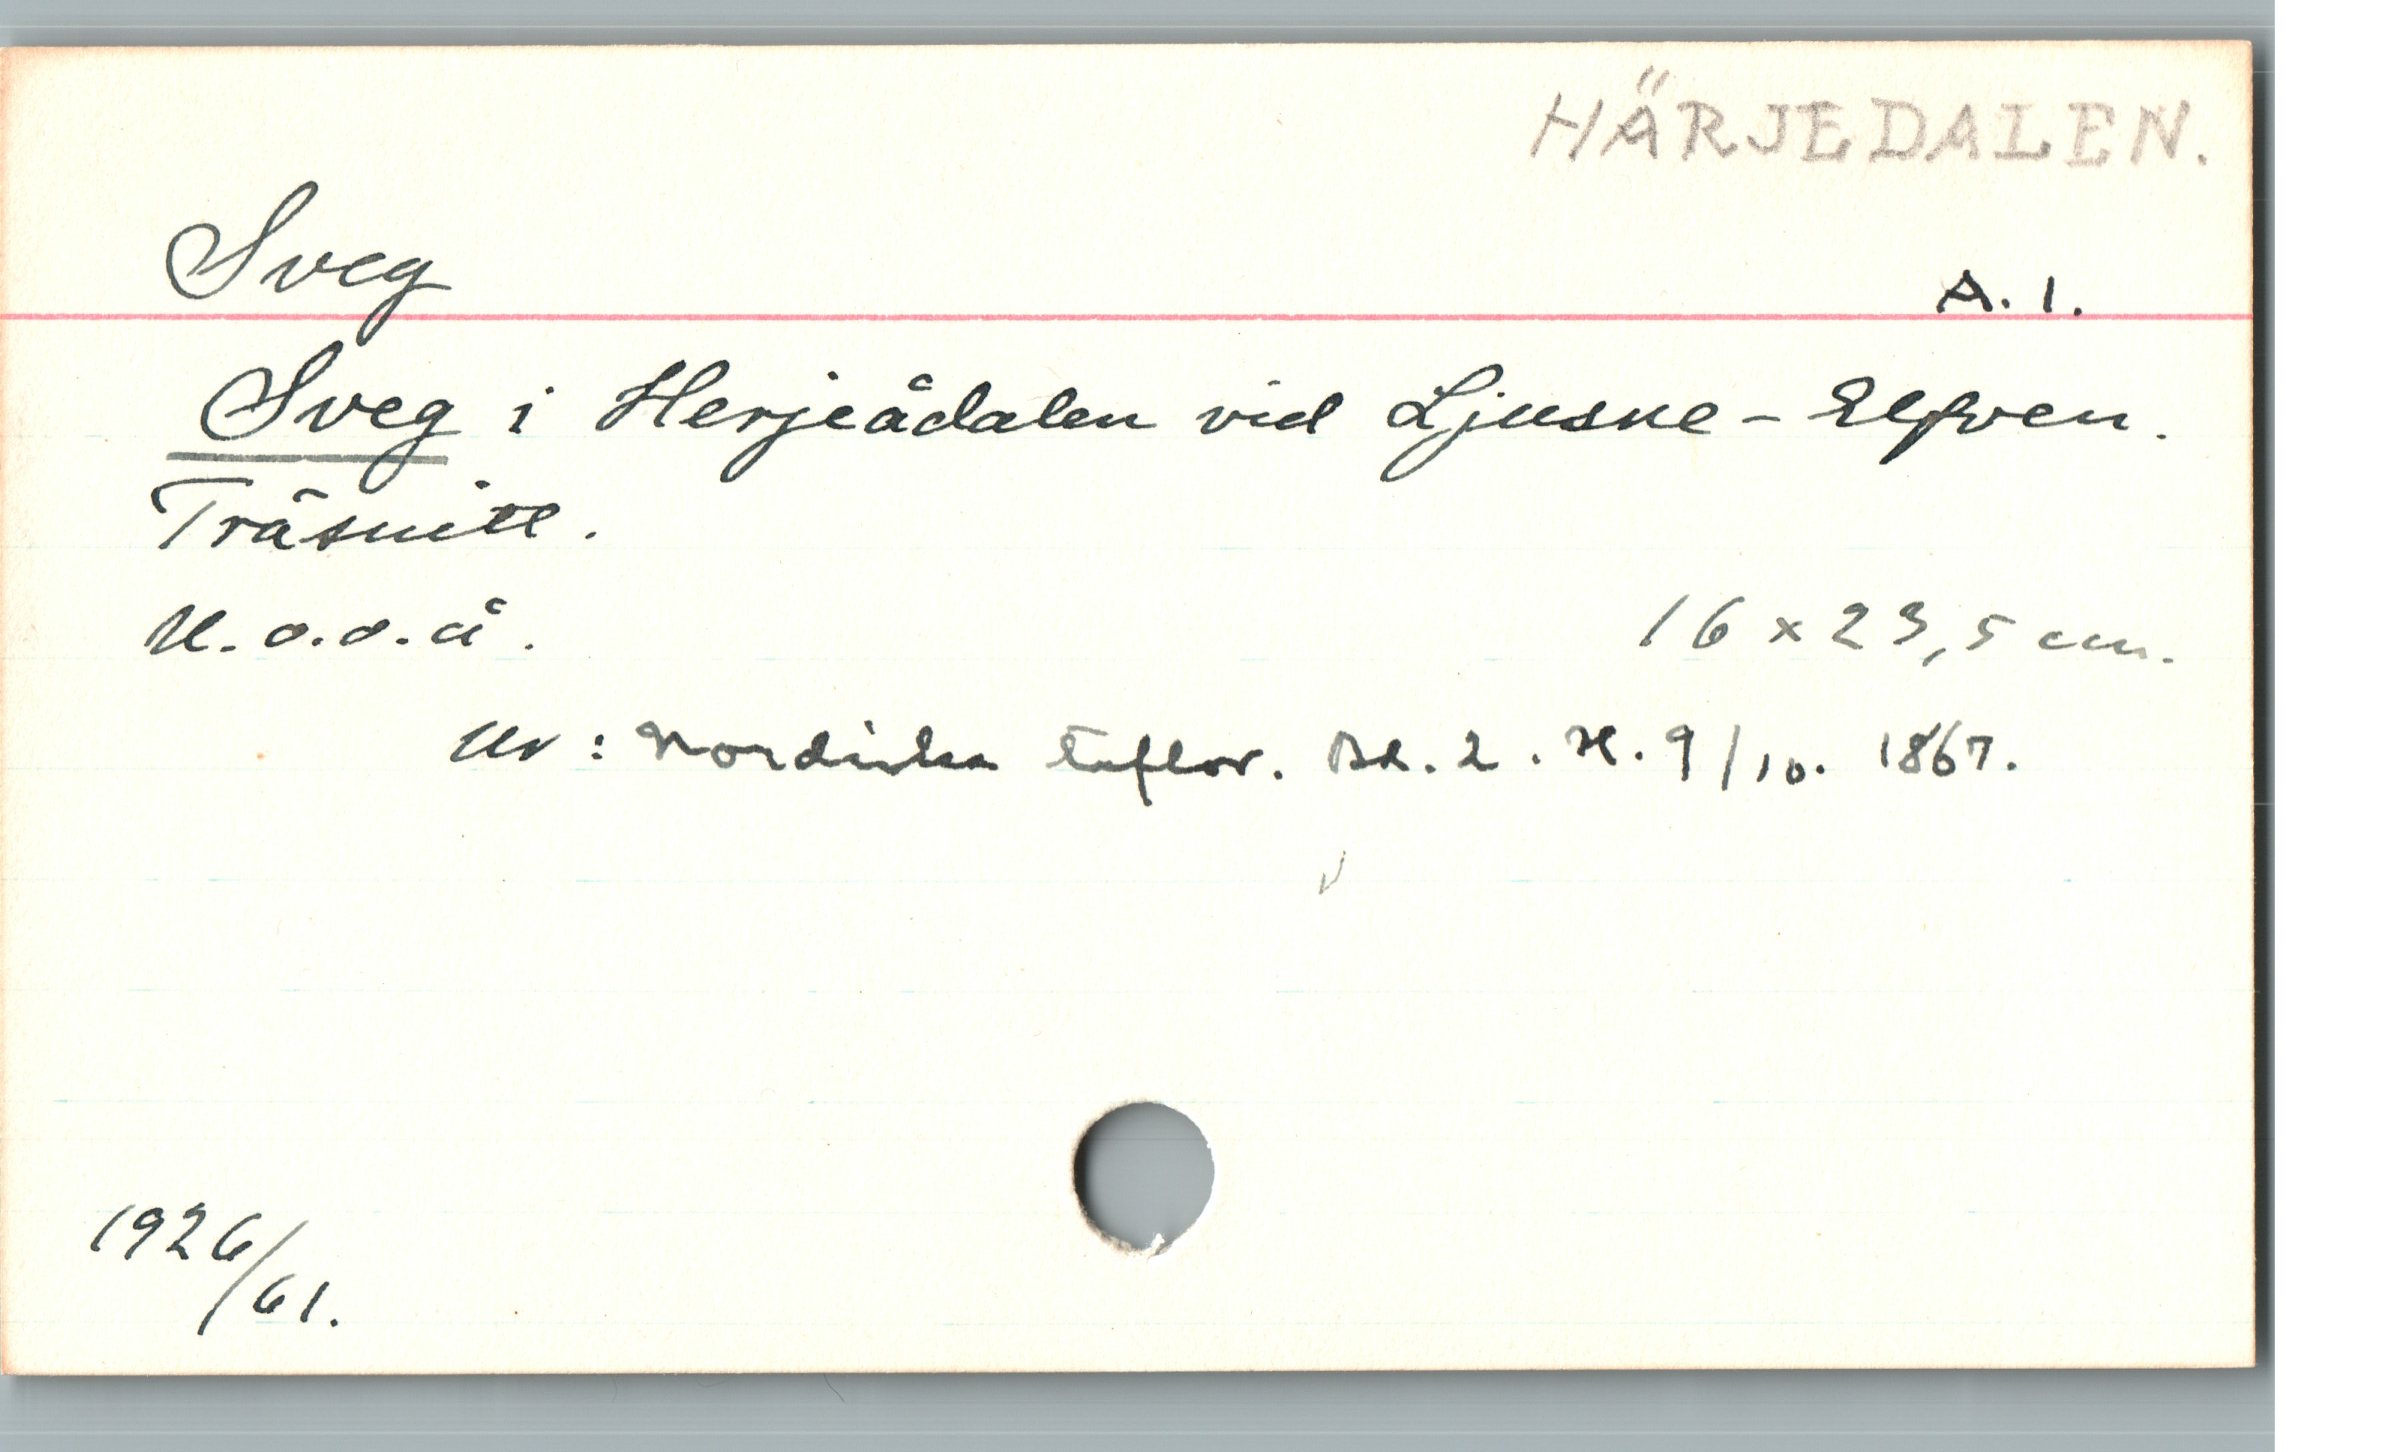 HÄRJEDALEN.
Sveg
A. 1.
Sveg i Herjeådalen vid Ljusne-Elfven.
Träsnitt.
U. o. o. å.
16 x 23,5 cm.
Ur: Nordiska taflor. Bd. 2. H. 9/10. 1867.
1926/61.